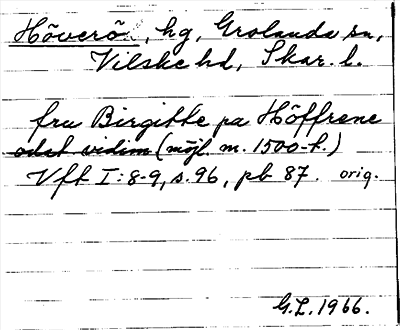 Höverö, hg, Grolanda sn,
Vilske hd, Skar. l.
fru Birgitte pa Höffrene
odat vidim (möjl. m. 1500-t.)
Vft I:8-9, s. 96, pb 87. orig.
G.L. 1966.